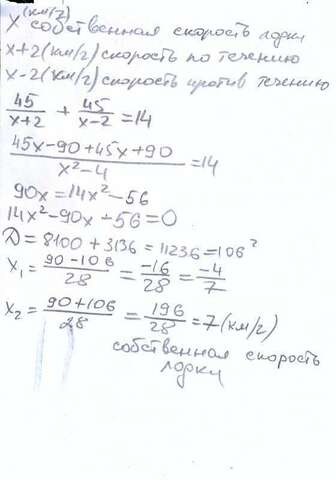 x (км/г) собственная скорость лодки
x+2 (км/г) скорость по течению
x-2 (км/г) скорость против течению
45/(x+2) + 45/(x-2) = 14
(45x-90+45x+90)/(x²-4) = 14
90x = 14x² - 56
14x² - 90x - 56 = 0
D = 8100 + 3136 = 11236 = 106²
x₁ = (90-106)/28 = -16/28 = -4/7
x₂ = (90+106)/28 = 196/28 = 7 (км/г)
собственная скорость
лодки